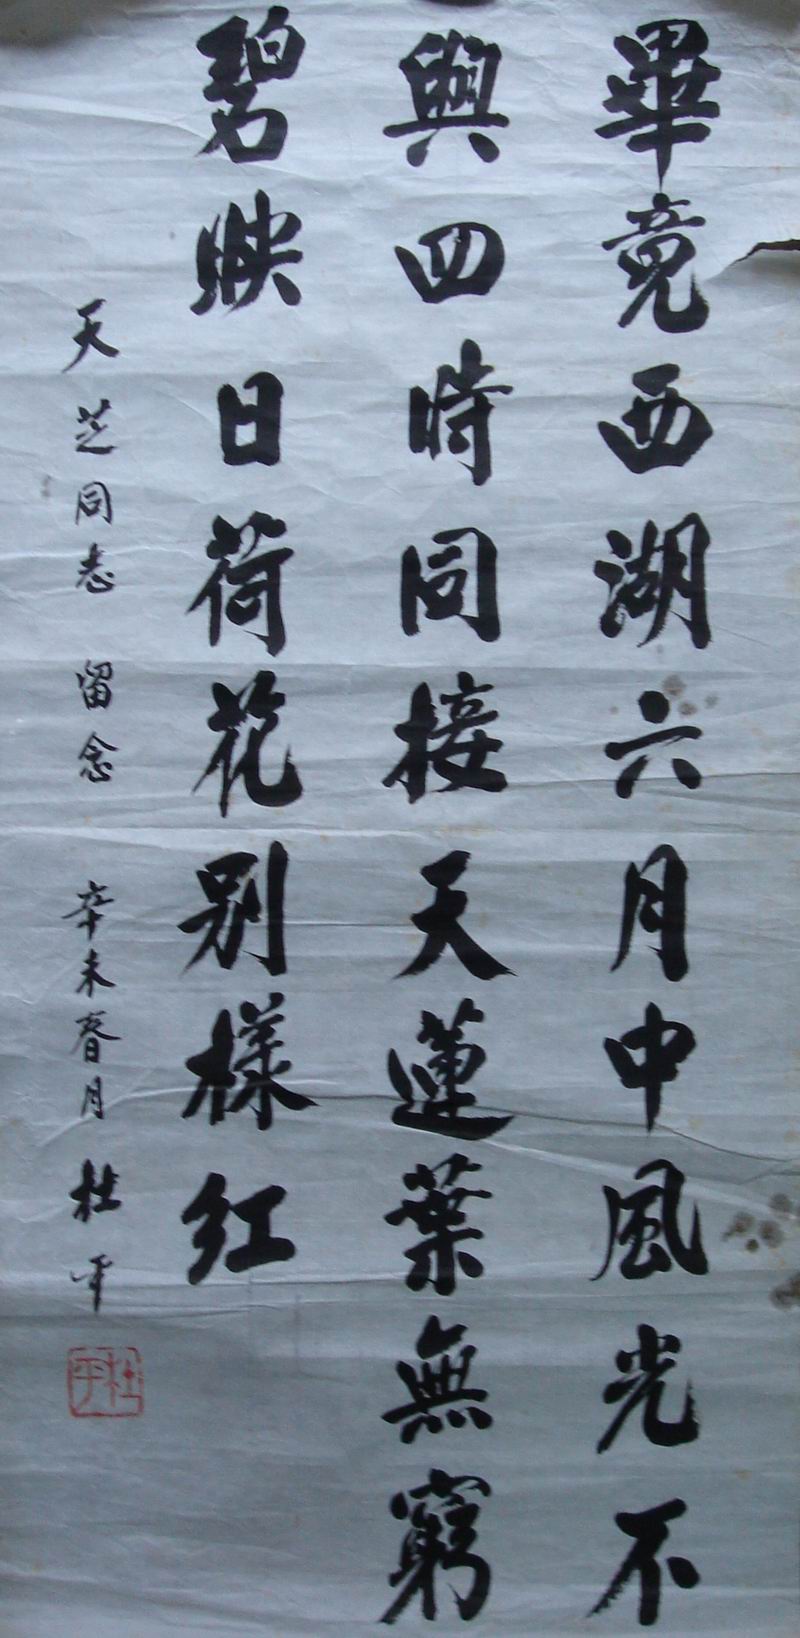 畢竟西湖六月中風光不
與四時同接天蓮葉無窮
碧映日荷花别樣紅
天芝同志 留念 辛未春月 杜平
杜平